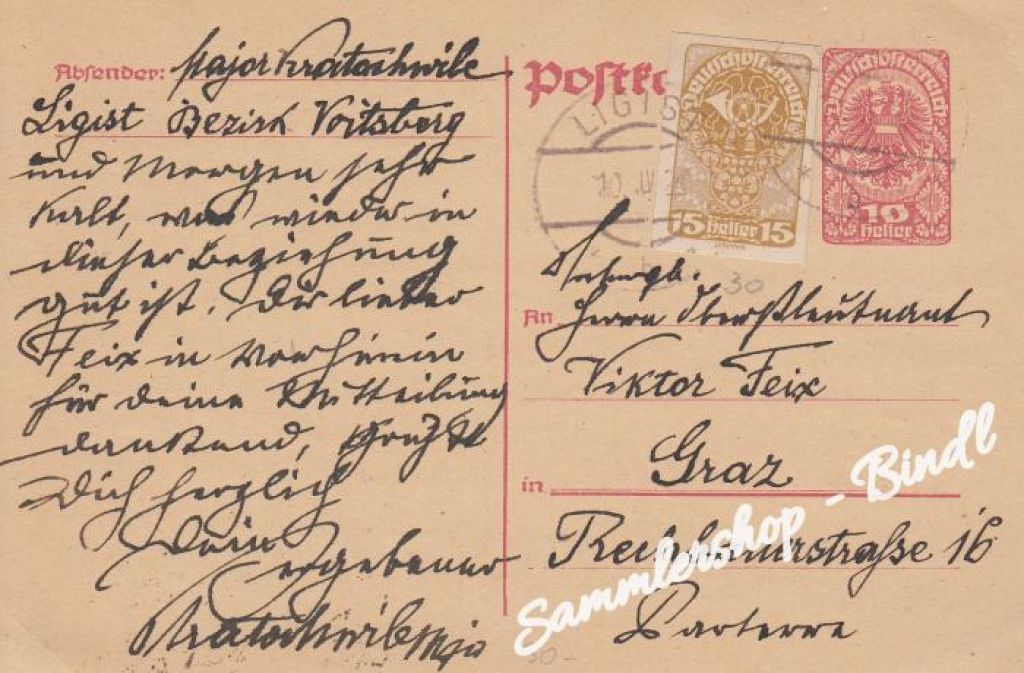 Absender: Major Kratochwile
Ligist Bezirk Voitsberg
und Morgen sehr
kalt, was wieder in
dieser Beziehung
gut ist. Dir lieber
Feix im Vorhinein
für deine Mitteilung
dankend, grüßt
Dich herzlich
Dein
ergebener
Kratochwile Mjr
Postka
LIGIST
Deutschösterreich
15 heller 15
Deutschösterreich
10
heller
30
An Herrn Oberstleutnant
Viktor Feix
Graz
in
Rechbauerstraße 16
Parterre
Sammlershop - Bindl